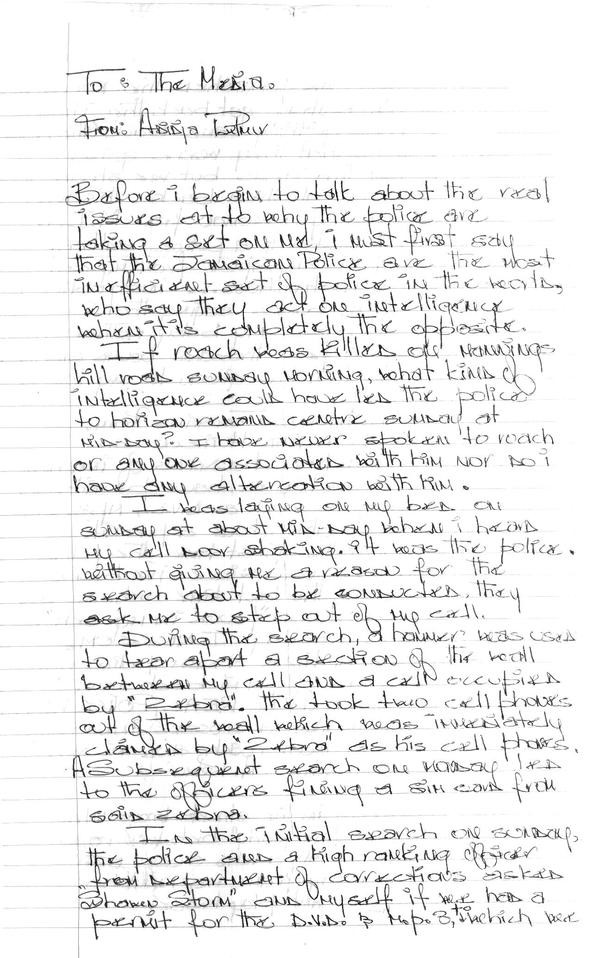 To : The Media.
From: Adidja Palmer
Before i begin to talk about the real
issues at to why the police are
taking a set on me, i must first say
that the Jamaican Police are the most
inefficient set of police in the world,
who say they act on intelligence
when it is completely the opposite.
If roach was killed on Mannings
hill road sunday morning, what kind of
intelligence could have led the police
to horizon remand centre sunday at
mid-day? I have never spoken to roach
or any one associated with him nor do i
have any altercation with him.
I was laying on my bed on
sunday at about mid-day when i heard
my cell door shaking. it was the police.
without giving me a reason for the
search about to be conducted, they
ask me to step out of my cell.
During the search, a hammer was used
to tear apart a section of the wall
between my cell and a cell occupied
by "Zebra". the took two cell phones
out of the wall which was immediately
claimed by "Zebra" as his cell phones.
A Subsequent search on monday led
to the officers finding a sim card from
said zebra.
In the initial search on sunday,
the police and a high ranking officer
from department of corrections asked
"Shawn Storm" and myself if we had a
permit for the D.V.D. & M.p.3, in which we